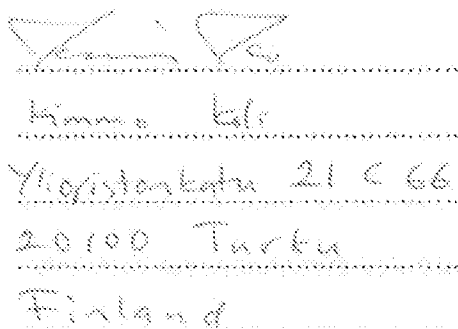 Kimmo Koli
Yliopistonkatu 21 C 66
20100 Turku
Finland